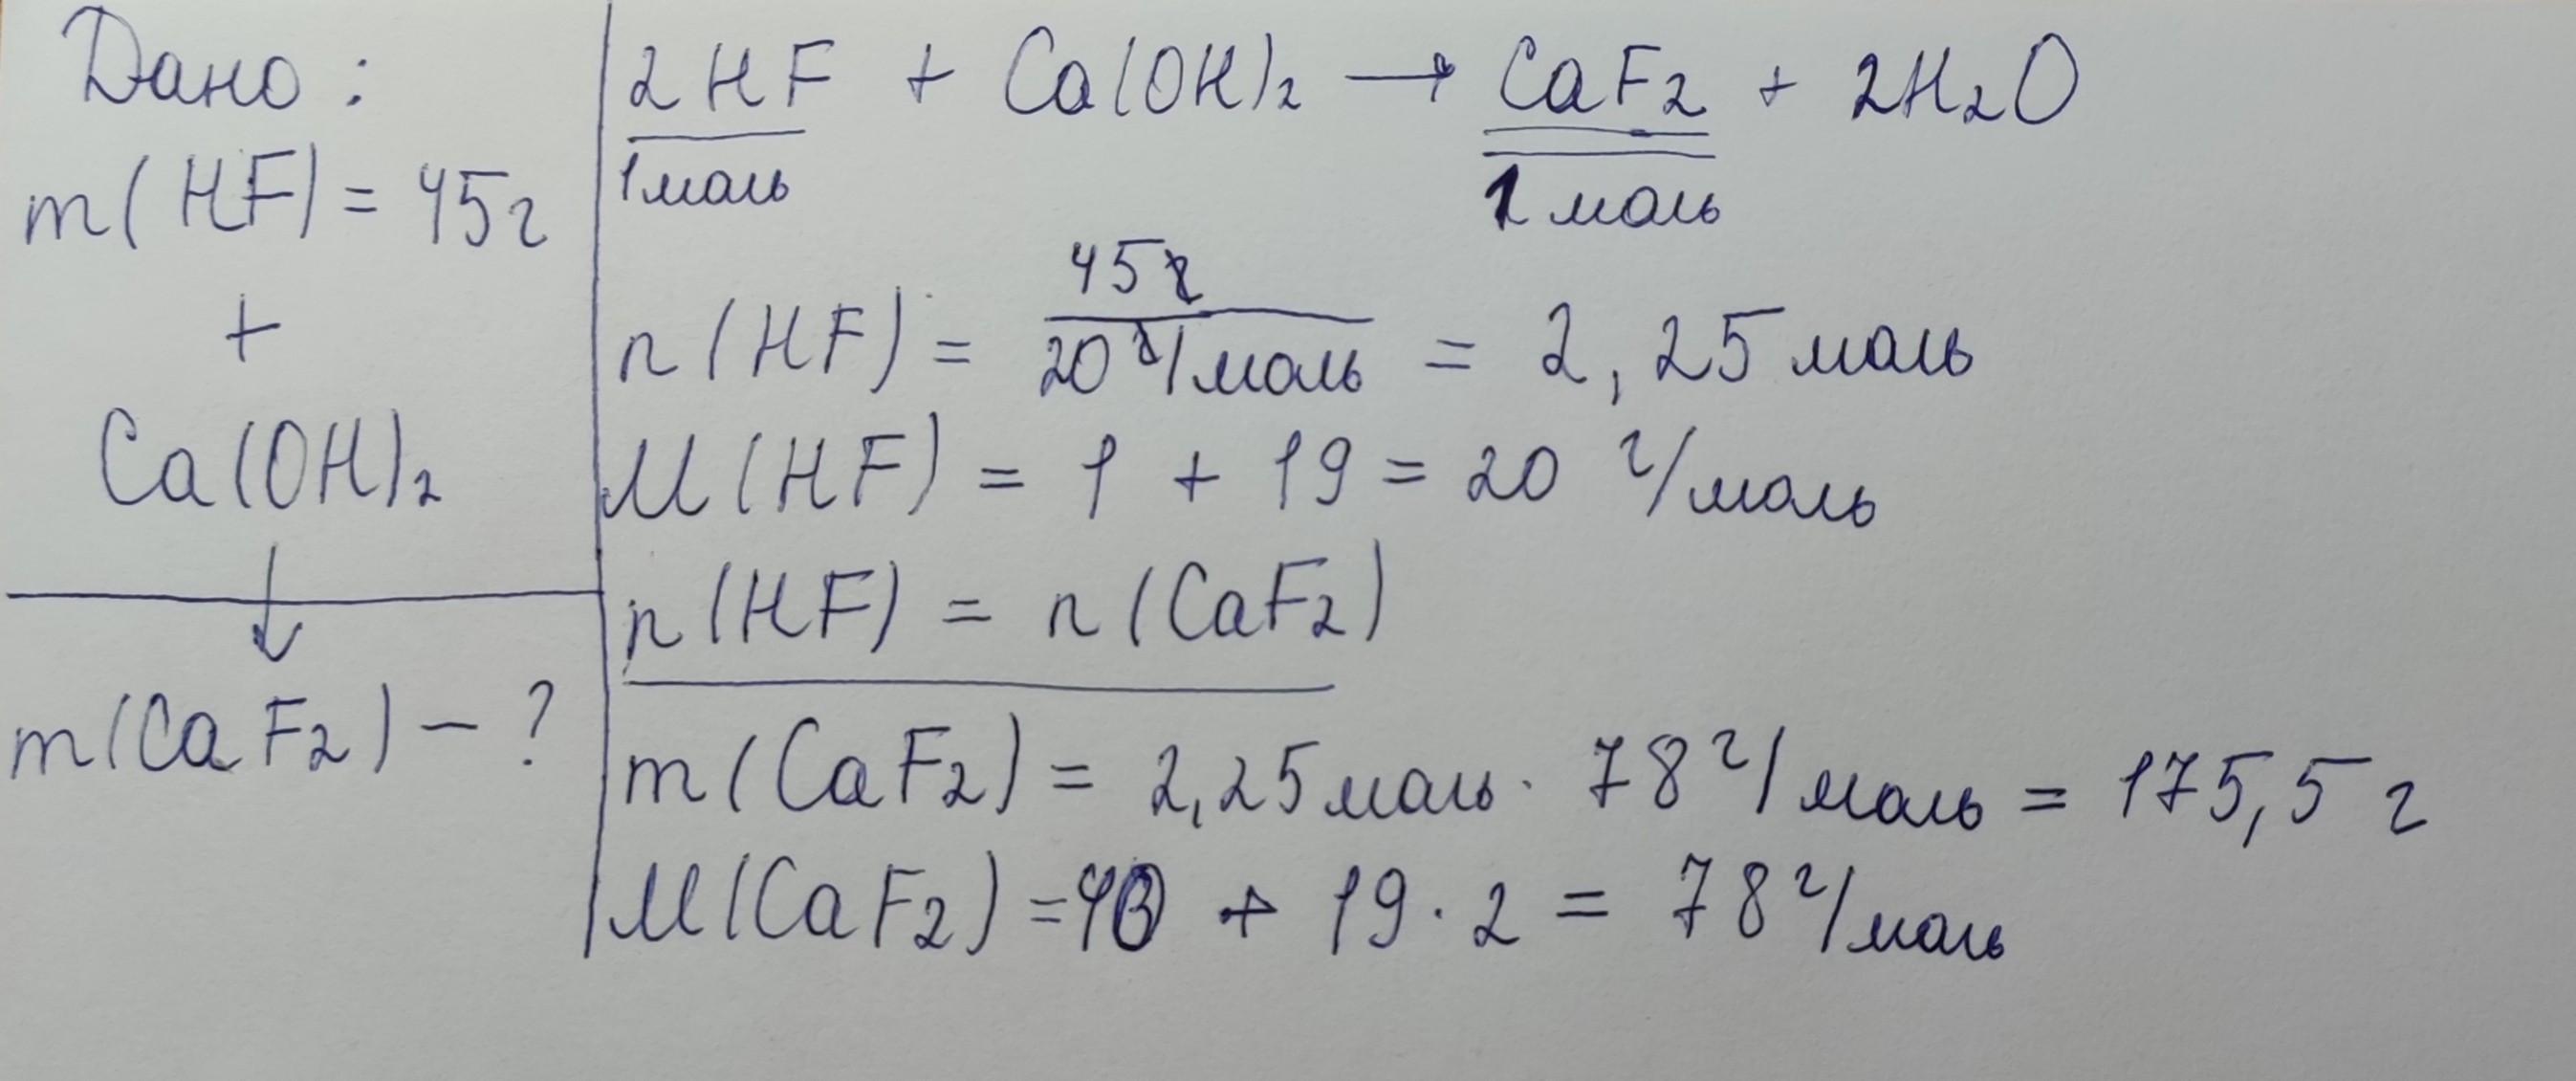 Дано:
m(HF) = 45г
+
Ca(OH)₂
↓
m(CaF₂) – ?
2HF + Ca(OH)₂ → CaF₂ + 2H₂O
1моль 1 моль
n(HF) = 45г / 20 г/моль = 2,25 моль
M(HF) = 1 + 19 = 20 г/моль
n(HF) = n(CaF₂)
m(CaF₂) = 2,25 моль · 78 г/моль = 175,5 г
M(CaF₂) = 40 + 19 · 2 = 78 г/моль